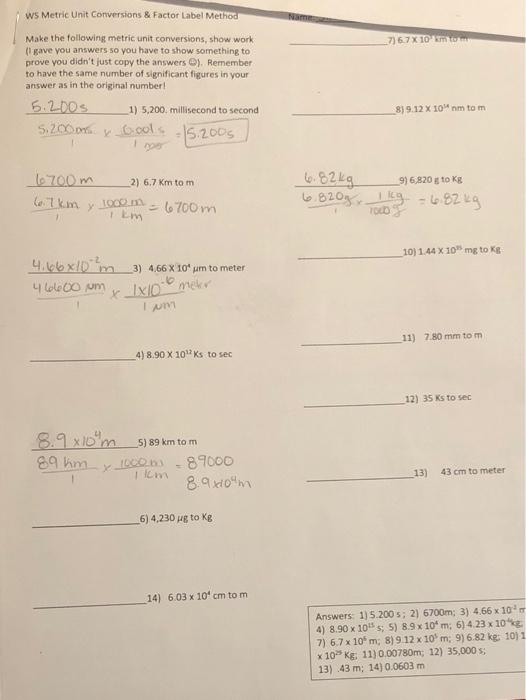 WS Metric Unit Conversions & Factor Label Method
Name
Make the following metric unit conversions, show work
(I gave you answers so you have to show something to
prove you didn't just copy the answers ☺). Remember
to have the same number of significant figures in your
answer as in the original number!
5.200s 1) 5,200. millisecond to second
5,200ms x 0.001s = 5.200s
1 1 ms
6700m 2) 6.7 Km to m
6.7 km x 1000m = 6700m
1 1 km
4.66x10⁻²m 3) 4.66 X 10⁴ µm to meter
46600 µm x 1x10⁻⁶ meter
1 1 µm
4) 8.90 X 10¹² Ks to sec
8.9 x10⁴m 5) 89 km to m
89 km x 1000m = 89000
1 1 km 8.9x10⁴m
6) 4,230 µg to Kg
14) 6.03 x 10⁴ cm to m
7) 6.7 X 10³ km to m
8) 9.12 X 10¹⁴ nm to m
6.82kg 9) 6,820 g to Kg
6.820g x 1 kg = 6.82 kg
1 1000g
10) 1.44 X 10³⁵ mg to Kg
11) 7.80 mm to m
12) 35 Ks to sec
13) 43 cm to meter
Answers: 1) 5.200 s; 2) 6700m; 3) 4.66 x 10⁻² m
4) 8.90 x 10¹⁵ s; 5) 8.9 x 10⁴ m; 6) 4.23 x 10⁻⁶kg;
7) 6.7 x 10⁶ m; 8) 9.12 x 10⁵ m; 9) 6.82 kg; 10) 1
x 10²⁹ Kg; 11) 0.00780m; 12) 35,000 s;
13) .43 m; 14) 0.0603 m